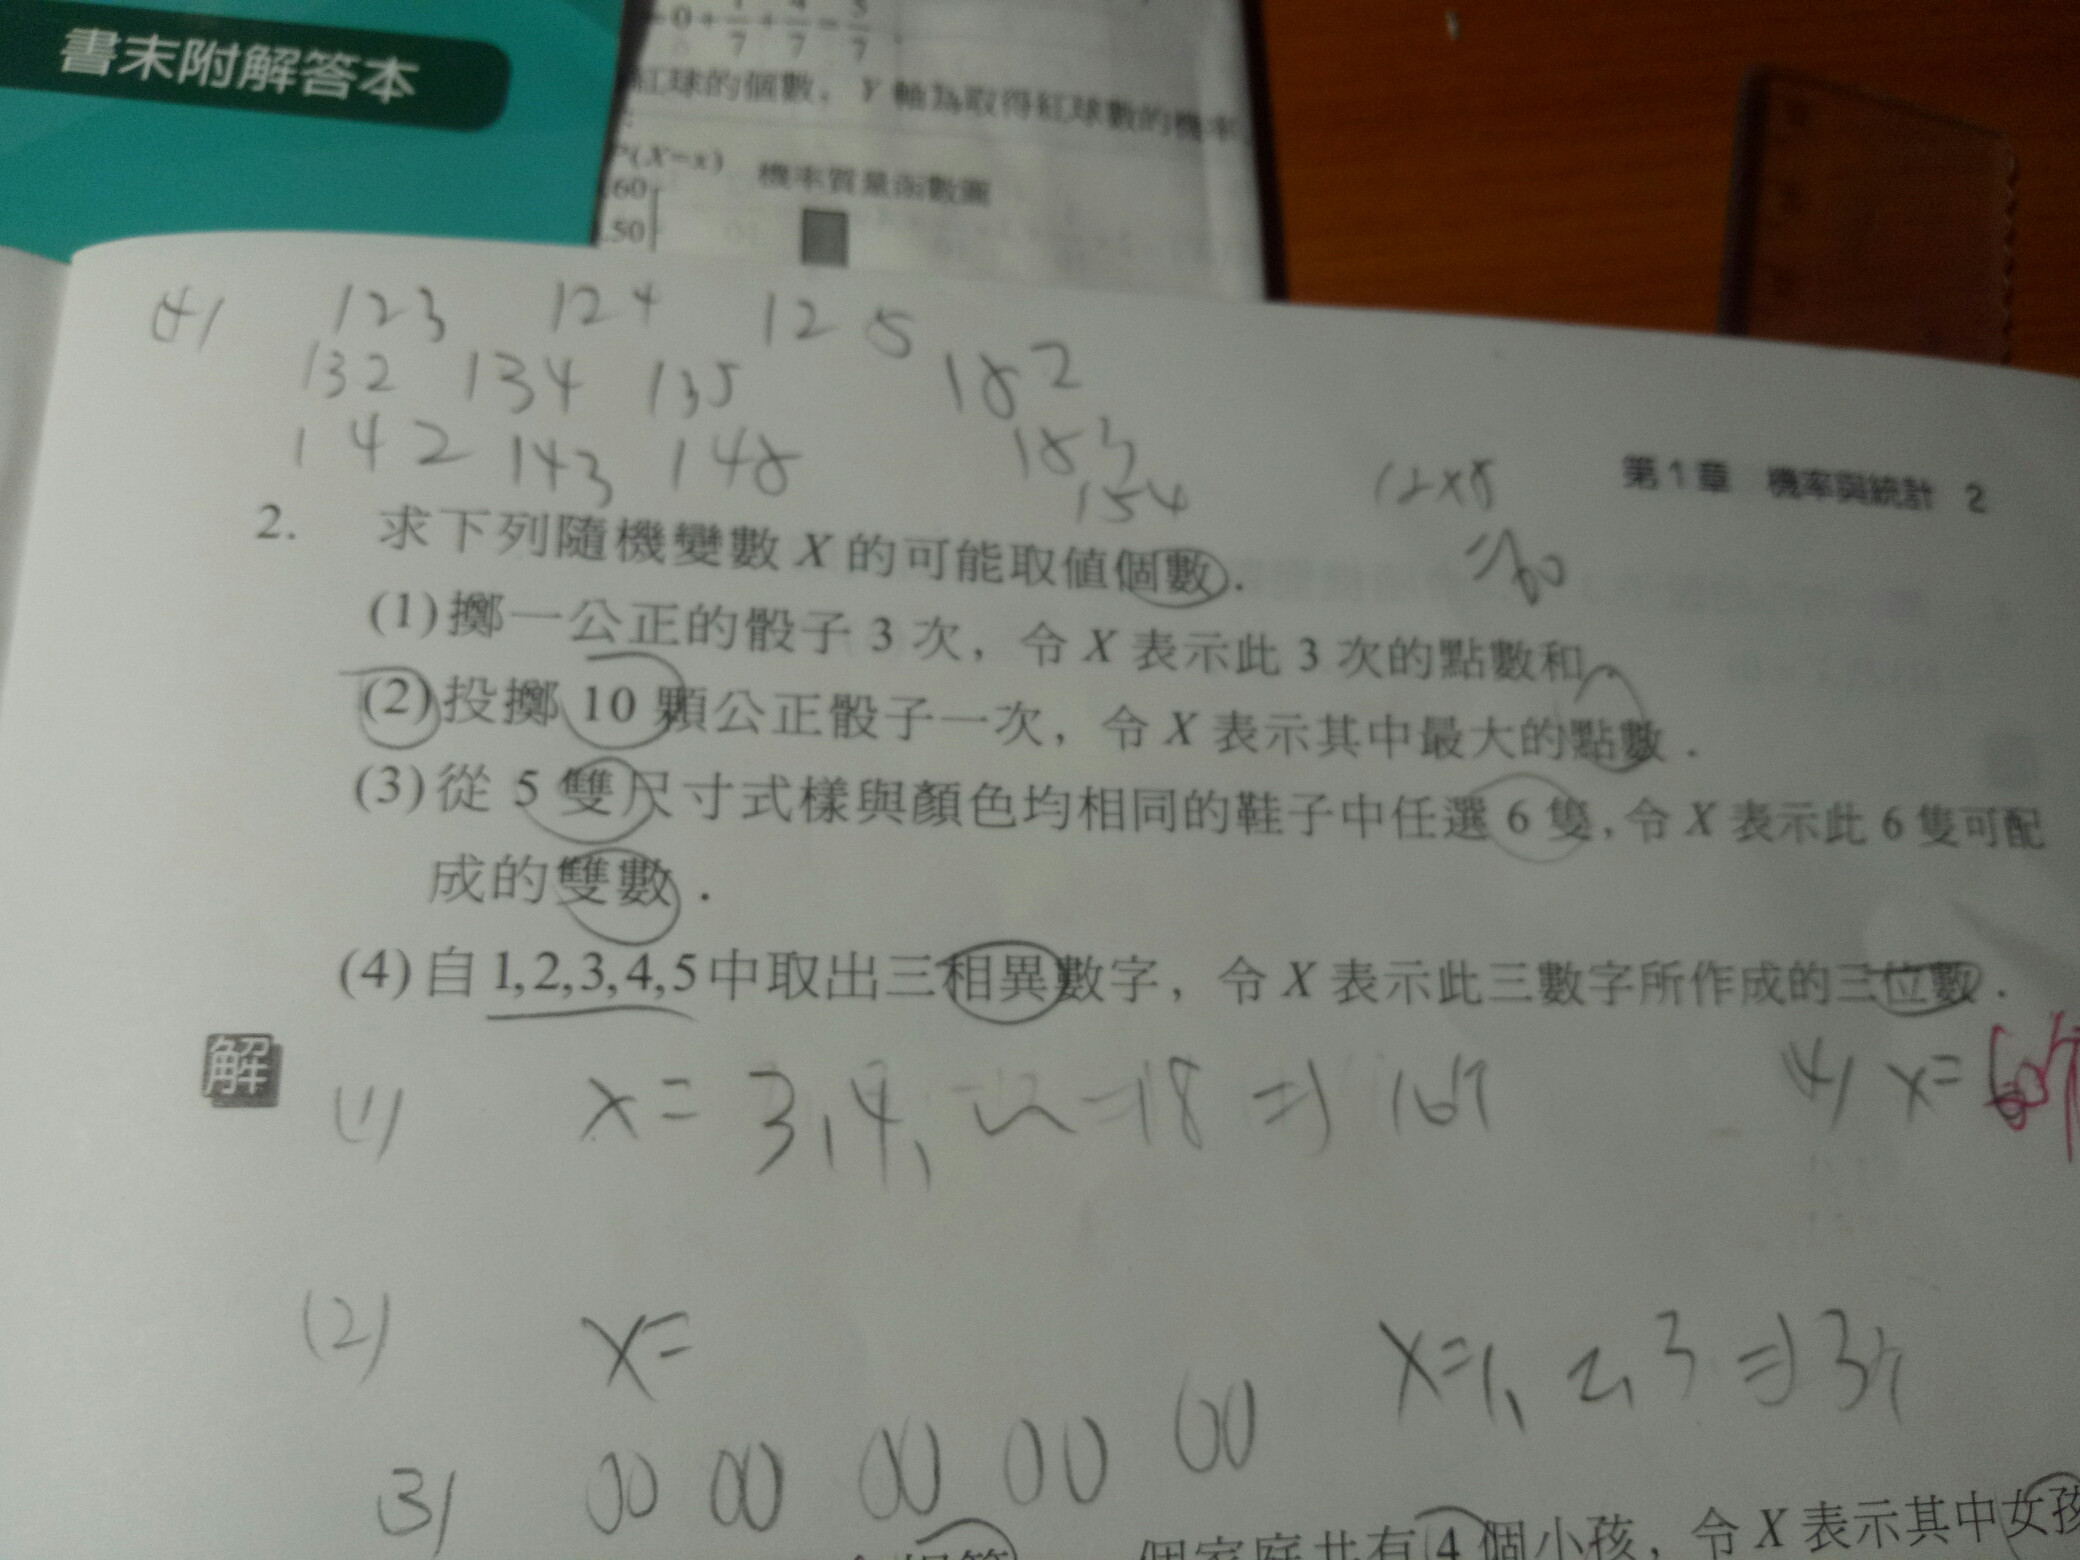 書末附解答本
紅球的個數，Y 軸為取得紅球數的機率
P(X=x) 機率質量函數圖
.60
.50
(4) 123 124 125
132 134 135 152
142 143 145 153
154
12×5
=60
第1章 機率與統計 2
2. 求下列隨機變數 X 的可能取值個數．
(1)擲一公正的骰子 3 次，令 X 表示此 3 次的點數和．
(2)投擲 10 顆公正骰子一次，令 X 表示其中最大的點數．
(3)從 5 雙尺寸式樣與顏色均相同的鞋子中任選 6 隻，令 X 表示此 6 隻可配
成的雙數．
(4)自1,2,3,4,5中取出三相異數字，令 X 表示此三數字所作成的三位數．
解
(1) x=3,4, 18 ⇒ 16個
(4) x=60個
(2) x=
x=1, 2, 3 ⇒ 3個
(3) 00 00 00 00 00
個家庭共有 4 個小孩，令 X 表示其中女孩